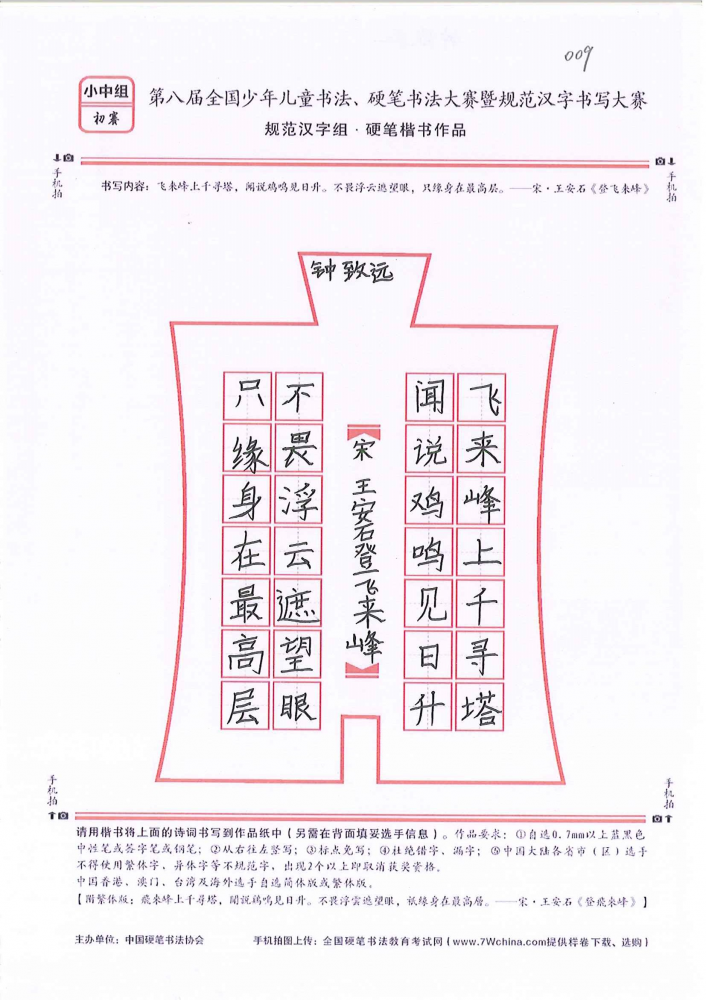 009
小中组
初赛
第八届全国少年儿童书法、硬笔书法大赛暨规范汉字书写大赛
规范汉字组·硬笔楷书作品
手机拍
手机拍
书写内容：飞来峰上千寻塔，闻说鸡鸣见日升。不畏浮云遮望眼，只缘身在最高层。——宋·王安石《登飞来峰》
钟致远
飞来峰上千寻塔
闻说鸡鸣见日升
宋 王安石登飞来峰
不畏浮云遮望眼
只缘身在最高层
手机拍
手机拍
请用楷书将上面的诗词书写到作品纸中（另需在背面填妥选手信息）。作品要求：①自选0.7mm以上蓝黑色
中性笔或签字笔或钢笔；②从右往左竖写；③标点免写；④杜绝错字、漏字；⑤中国大陆各省市（区）选手
不得使用繁体字、异体字等不规范字，出现2个以上即取消获奖资格。
中国香港、澳门、台湾及海外选手自选简体版或繁体版。
【附繁体版：飛來峰上千尋塔，聞說鷄鳴見日升。不畏浮雲遮望眼，祇緣身在最高層。——宋·王安石《登飛來峰》】
主办单位：中国硬笔书法协会
手机拍图上传：全国硬笔书法教育考试网（www.7Wchina.com提供样卷下载、选购）